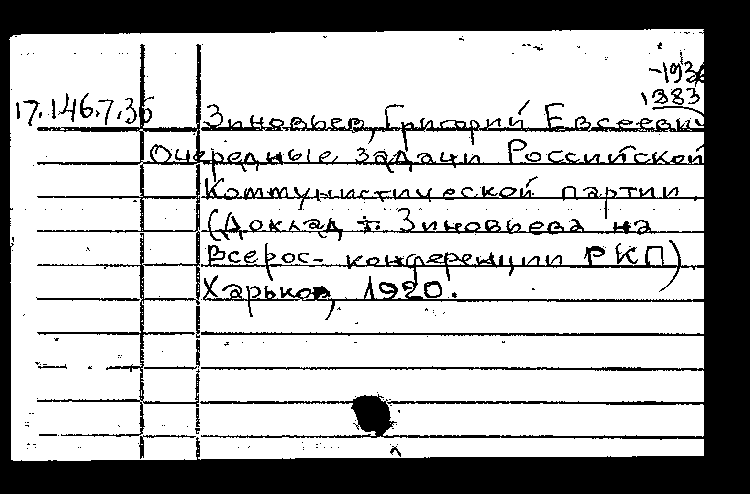 -1936
1883
17.146.7.36 Зиновьев, Григорий Евсеевич
Очередные задачи Российской
Коммунистической партии.
(Доклад т. Зиновьева на
Всерос- конференции РКП)
Харьков, 1920.